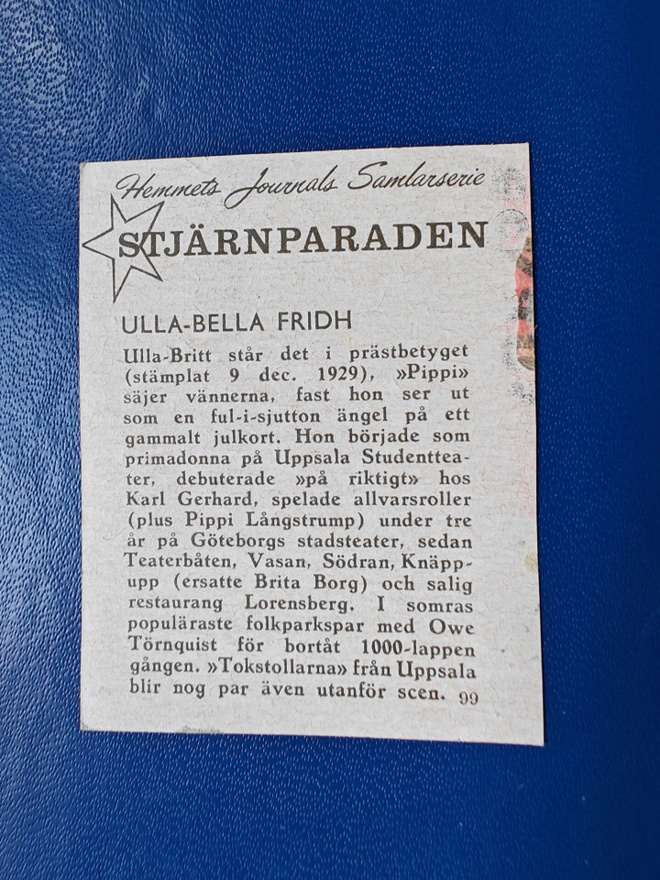 Hemmets Journals Samlarserie
STJÄRNPARADEN
ULLA-BELLA FRIDH
Ulla-Britt står det i prästbetyget
(stämplat 9 dec. 1929), »Pippi»
säjer vännerna, fast hon ser ut
som en ful-i-sjutton ängel på ett
gammalt julkort. Hon började som
primadonna på Uppsala Studenttea-
ter, debuterade »på riktigt» hos
Karl Gerhard, spelade allvarsroller
(plus Pippi Långstrump) under tre
år på Göteborgs stadsteater, sedan
Teaterbåten, Vasan, Södran, Knäpp-
upp (ersatte Brita Borg) och salig
restaurang Lorensberg. I somras
populäraste folkparkspar med Owe
Törnquist för bortåt 1000-lappen
gången. »Tokstollarna» från Uppsala
blir nog par även utanför scen. 99